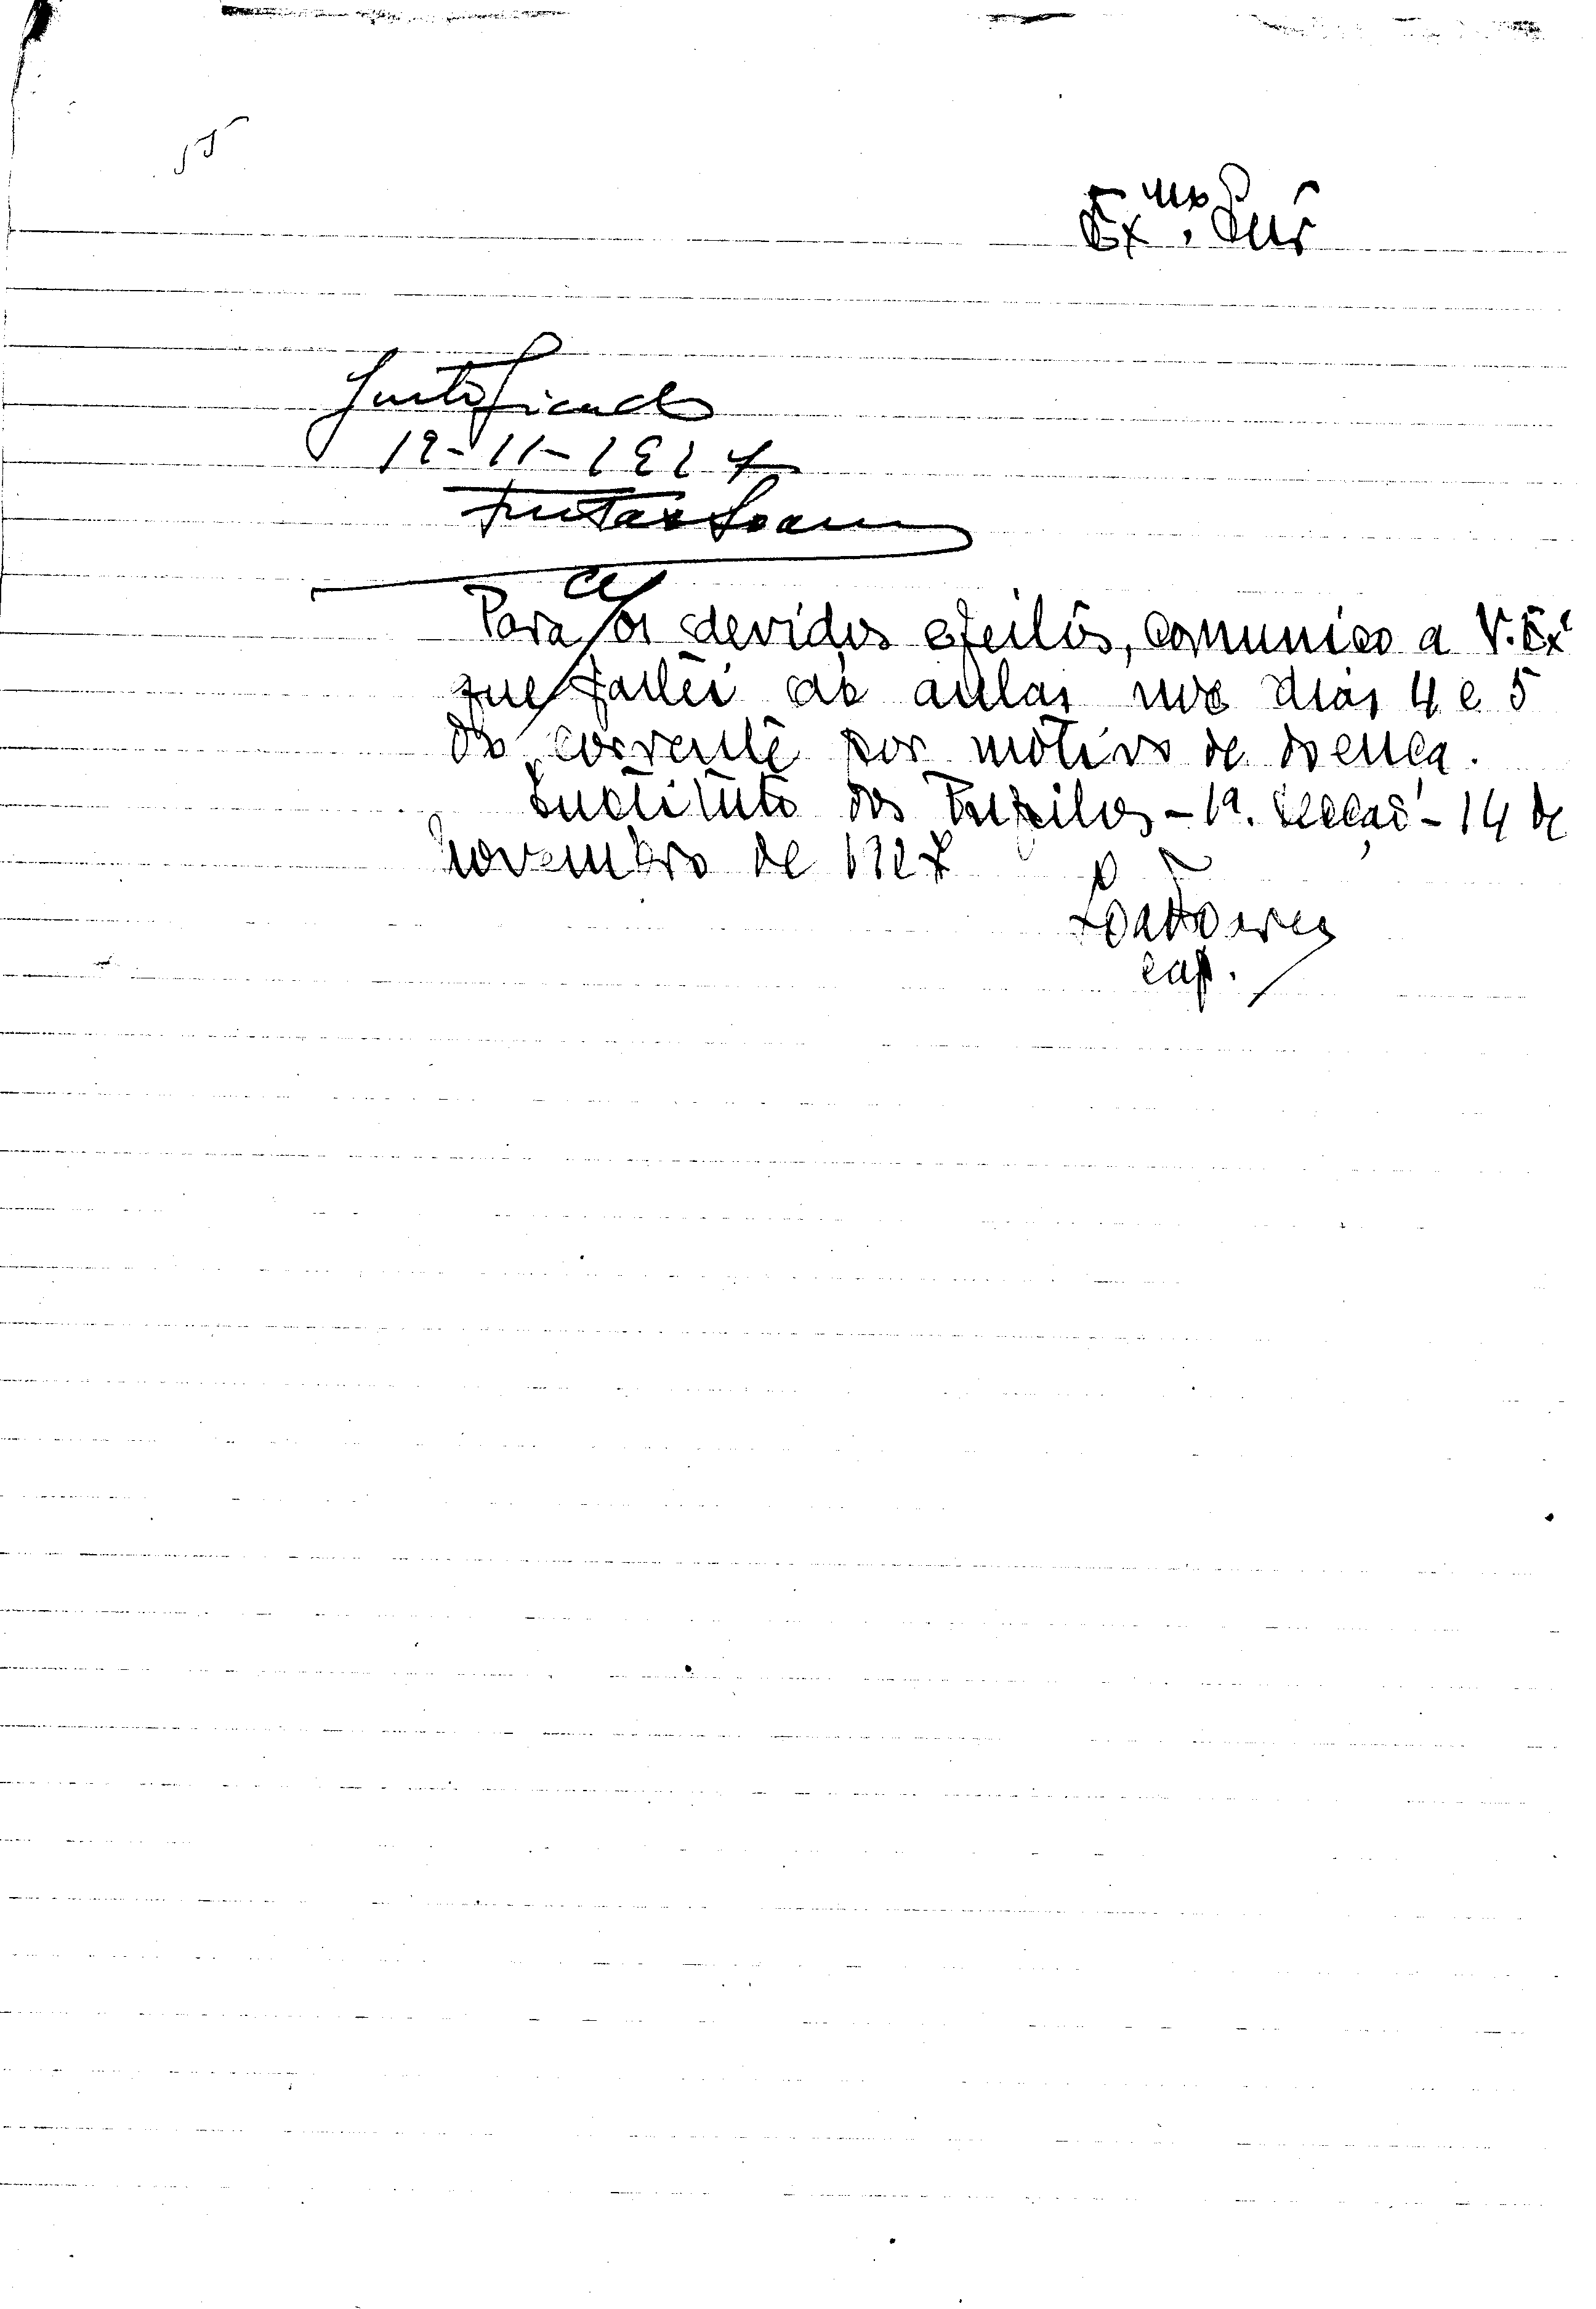 Ex.mo Snr
Justificado
19-11-1927
Para os devidos efeitos, comunico a V. Ex.
que faltei ás aulas nos dias 4 e 5
do corrente por motivo de doença.
Instituto dos Pupilos - 1ª. Secção - 14 de
Novembro de 1927
cap.